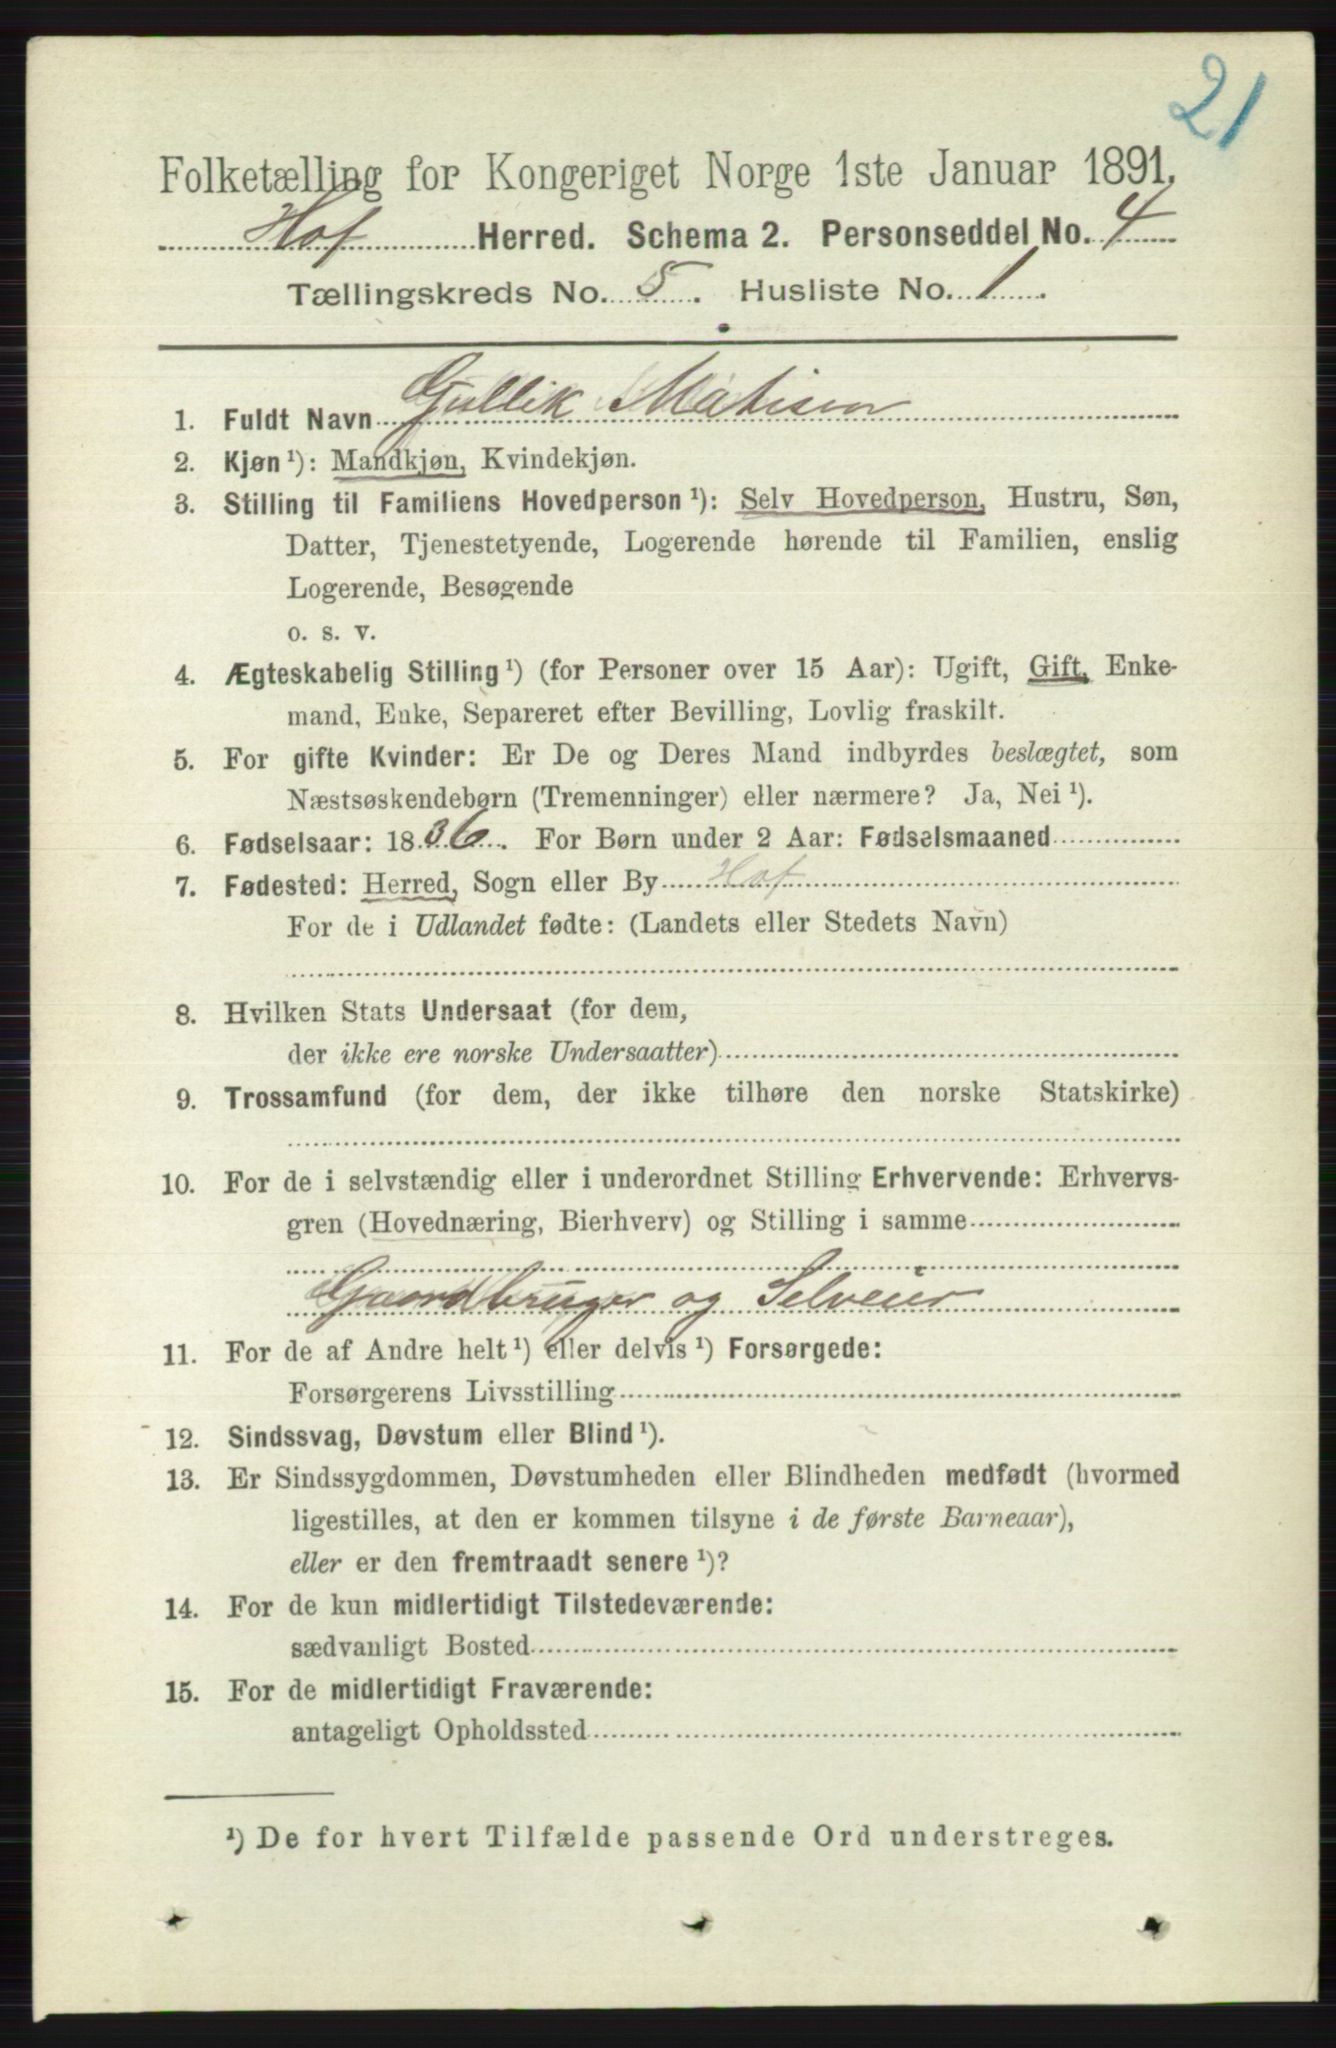 21
Folketælling for Kongeriget Norge 1ste Januar 1891.
Hof Herred. Schema 2. Personseddel No. 4
Tællingskreds No. 5. Husliste No. 1.
1. Fuldt Navn Gullik Mathisen
2. Kjøn ¹): Mandkjøn, Kvindekjøn.
3. Stilling til Familiens Hovedperson ¹): Selv Hovedperson, Hustru, Søn,
Datter, Tjenestetyende, Logerende hørende til Familien, enslig
Logerende, Besøgende
o. s. v.
4. Ægteskabelig Stilling ¹) (for Personer over 15 Aar): Ugift, Gift, Enke-
mand, Enke, Separeret efter Bevilling, Lovlig fraskilt.
5. For gifte Kvinder: Er De og Deres Mand indbyrdes beslægtet, som
Næstsøskendebørn (Tremenninger) eller nærmere? Ja, Nei ¹).
6. Fødselsaar: 1836. For Børn under 2 Aar: Fødselsmaaned
7. Fødested: Herred, Sogn eller By Hof
For de i Udlandet fødte: (Landets eller Stedets Navn)
8. Hvilken Stats Undersaat (for dem,
der ikke ere norske Undersaatter)
9. Trossamfund (for dem, der ikke tilhøre den norske Statskirke)
10. For de i selvstændig eller i underordnet Stilling Erhvervende: Erhvervs-
gren (Hovednæring, Bierhverv) og Stilling i samme
Gaardbruger og Selveier
11. For de af Andre helt ¹) eller delvis ¹) Forsørgede:
Forsørgerens Livsstilling
12. Sindssvag, Døvstum eller Blind ¹).
13. Er Sindssygdommen, Døvstumheden eller Blindheden medfødt (hvormed
ligestilles, at den er kommen tilsyne i de første Barneaar),
eller er den fremtraadt senere ¹)?
14. For de kun midlertidigt Tilstedeværende:
sædvanligt Bosted
15. For de midlertidigt Fraværende:
antageligt Opholdssted
¹) De for hvert Tilfælde passende Ord understreges.